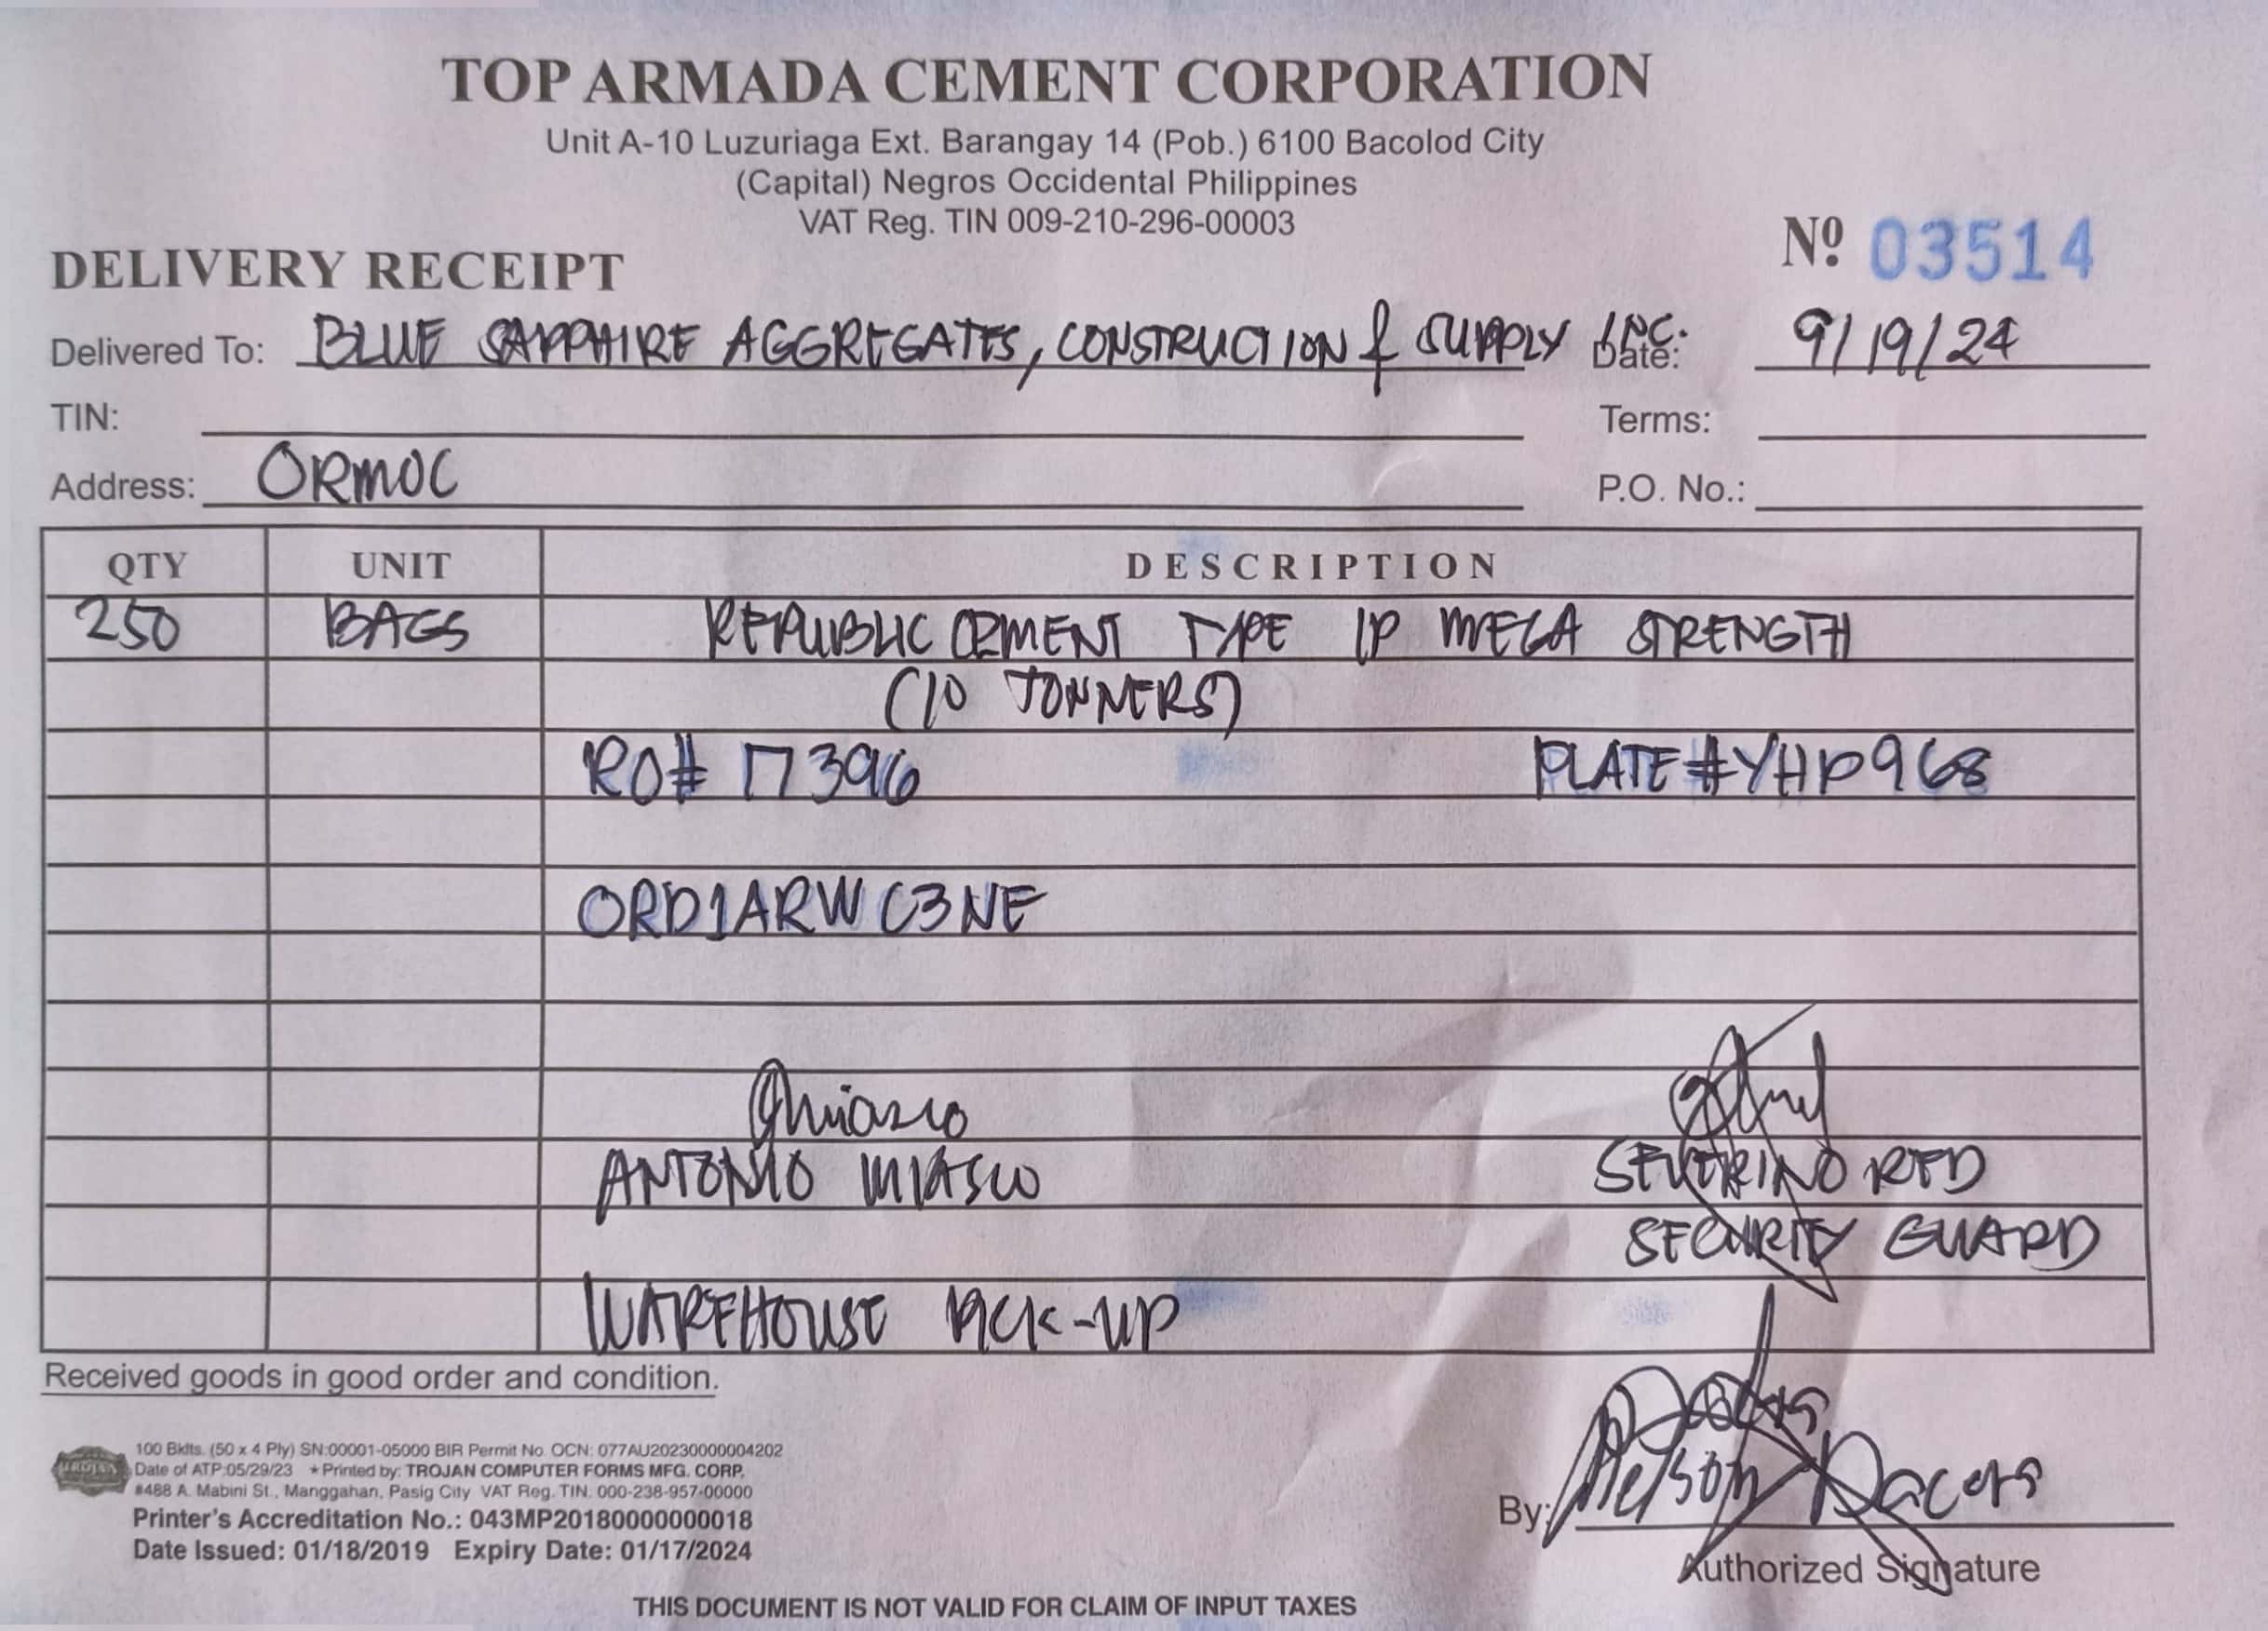 TOP ARMADA CEMENT CORPORATION
Unit A-10 Luzuriaga Ext. Barangay 14 (Pob.) 6100 Bacolod City
(Capital) Negros Occidental Philippines
VAT Reg. TIN 009-210-296-00003
Nº 03514
DELIVERY RECEIPT
Delivered To: BLUE SAPPHIRE AGGREGATES, CONSTRUCTION & SUPPLY INC. Date: 9/19/24
TIN: Terms:
Address: ORMOC P.O. No.:
QTY UNIT DESCRIPTION
250 BAGS REPUBLIC CEMENT TYPE 1P MEGA STRENGTH
(10 TONNERS)
RO# 17396 PLATE #YHP968
ORD1ARWC3NE
ANTONIO MIASCO SEVERINO RTD
SECURITY GUARD
WAREHOUSE PICK-UP
Received goods in good order and condition.
100 Bklts. (50 x 4 Ply) SN:00001-05000 BIR Permit No. OCN: 077AU20230000004202
TROJAN Date of ATP:05/29/23 ★ Printed by: TROJAN COMPUTER FORMS MFG. CORP.
#488 A. Mabini St., Manggahan, Pasig City VAT Reg. TIN: 000-238-957-00000
Printer's Accreditation No.: 043MP20180000000018
Date Issued: 01/18/2019 Expiry Date: 01/17/2024
By: Nelson Dacera
Authorized Signature
THIS DOCUMENT IS NOT VALID FOR CLAIM OF INPUT TAXES